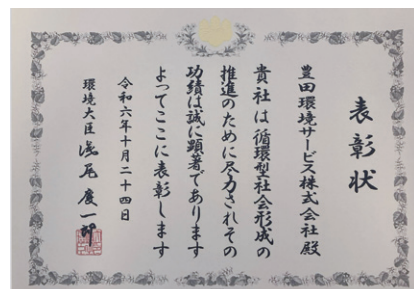 表彰状
豊田環境サービス株式会社 殿
貴社は循環型社会形成の
推進のために尽力されその
功績は誠に顕著であります
よってここに表彰します
令和六年十月二十四日
環境大臣 浅尾慶一郎